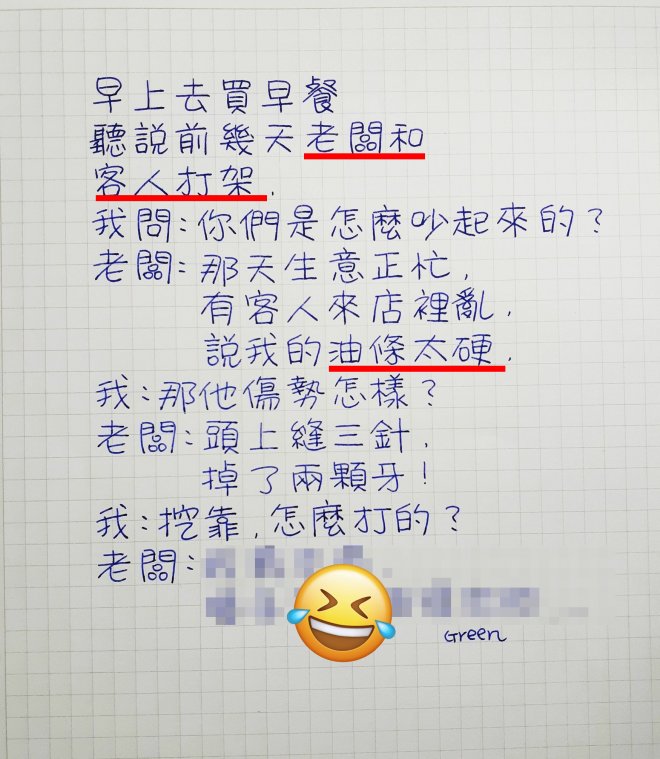 早上去買早餐
聽說前幾天老闆和
客人打架.
我問:你們是怎麼吵起來的?
老闆:那天生意正忙,
有客人來店裡亂,
說我的油條太硬.
我:那他傷勢怎樣?
老闆:頭上縫三針,
掉了兩顆牙!
我:挖靠,怎麼打的?
老闆:
Green